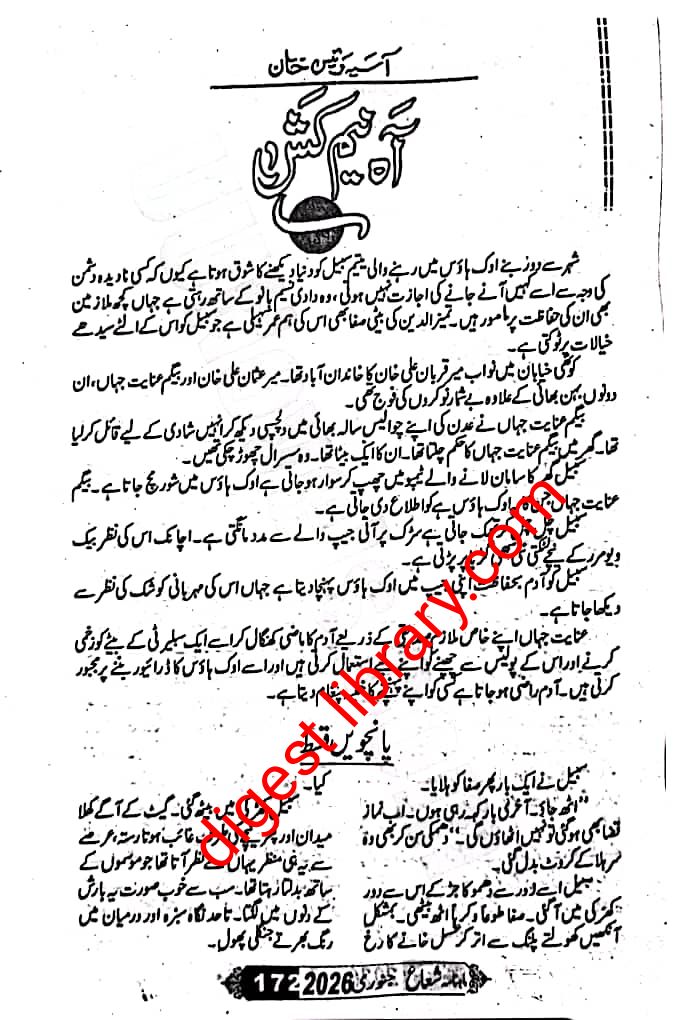 آسیہ رئیس خان
آہ نیم کش
شہر سے دور بنے اوک ہاؤس میں رہنے والی یتیم سبیل کو دنیا دیکھنے کا شوق ہوتا ہے کیوں کہ کسی نادیدہ دشمن
کی وجہ سے اسے کہیں آنے جانے کی اجازت نہیں ہوتی، وہ دادی نسیم بانو کے ساتھ رہتی ہے جہاں کچھ ملازمین
بھی ان کی حفاظت پر مامور ہیں۔ تمیز الدین کی بیٹی صفا بھی اس کی ہم عمر سہیلی ہے جو سبیل کو اس کے الٹے سیدھے
خیالات پر ٹوکتی ہے۔
کوٹھی خیابان میں نواب میر قربان علی خان کا خاندان آباد تھا۔ میر عثمان علی خان اور بیگم عنایت جہاں، ان
دونوں بہن بھائی کے علاوہ بے شمار نوکروں کی فوج تھی۔
بیگم عنایت جہاں نے عدن کی اپنے چوالیس سالہ بھائی میں دلچسپی دیکھ کر انہیں شادی کے لیے قائل کر لیا
تھا۔ گھر میں بیگم عنایت جہاں کا حکم چلتا تھا۔ ان کا ایک بیٹا تھا۔ وہ سسرال چھوڑ چکی تھیں۔
سبیل گھر کا سامان لانے والے ٹیمپو میں چھپ کر سوار ہو جاتی ہے اوک ہاؤس میں شور مچ جاتا ہے۔ بیگم
عنایت جہاں اوک ہاؤس کو اطلاع دی جاتی ہے۔
سبیل چل تھک جاتی ہے سڑک پر آتی جیپ والے سے مدد مانگتی ہے۔ اچانک اس کی نظر بیک
ویو مرر کے نیچے لٹکتی پر پڑتی ہے۔
سبیل کو آدم بحفاظت اپنی جیپ میں اوک ہاؤس پہنچا دیتا ہے جہاں اس کی مہربانی کو شک کی نظر سے
دیکھا جاتا ہے۔
عنایت جہاں اپنے خاص ملازم کے ذریعے آدم کا ماضی کھنگال کر اسے ایک سلیبرٹی کے بیٹے کو زخمی
کرنے اور اس کے پولیس سے چھپنے کو اپنے لیے استعمال کرتی ہیں اور اسے اوک ہاؤس کا ڈرائیور بننے پر مجبور
کرتی ہیں۔ آدم راضی ہو جاتا ہے کسی کو اپنے پہنچنے کا پیغام دیتا ہے۔
پانچویں قسط
سبیل نے ایک بار پھر صفا کو ہلایا۔
”اٹھ جاؤ۔ آخری بار کہہ رہی ہوں۔ اب نماز
قضا بھی ہو گئی تو نہیں اٹھاؤں گی۔“ دھمکی سن کر بھی وہ
سر ہلا کے کروٹ بدل گئی۔
سبیل اسے زور سے دھموکا جڑ کے اس سے دور
کھڑکی میں آ گئی۔ صفا طوعاً و کرہاً اٹھ بیٹھی۔ بمشکل
آنکھیں کھولتے پلنگ سے اتر کر غسل خانے کا رخ
کیا۔
سبیل کھڑکی میں بیٹھ گئی۔ گیٹ کے آگے کھلا
میدان اور پھر غائب ہوتا رستہ، عرصے
سے یہ ہی منظر یہاں سے نظر آتا تھا جو موسموں کے
ساتھ بدلتا رہتا تھا۔ سب سے خوب صورت یہ بارش
کے دنوں میں لگتا۔ تاحد نگاہ سبزہ اور درمیان میں
رنگ بھرتے جنگلی پھول۔
ماہنامہ شعاع جنوری 2026 172
digest library.com